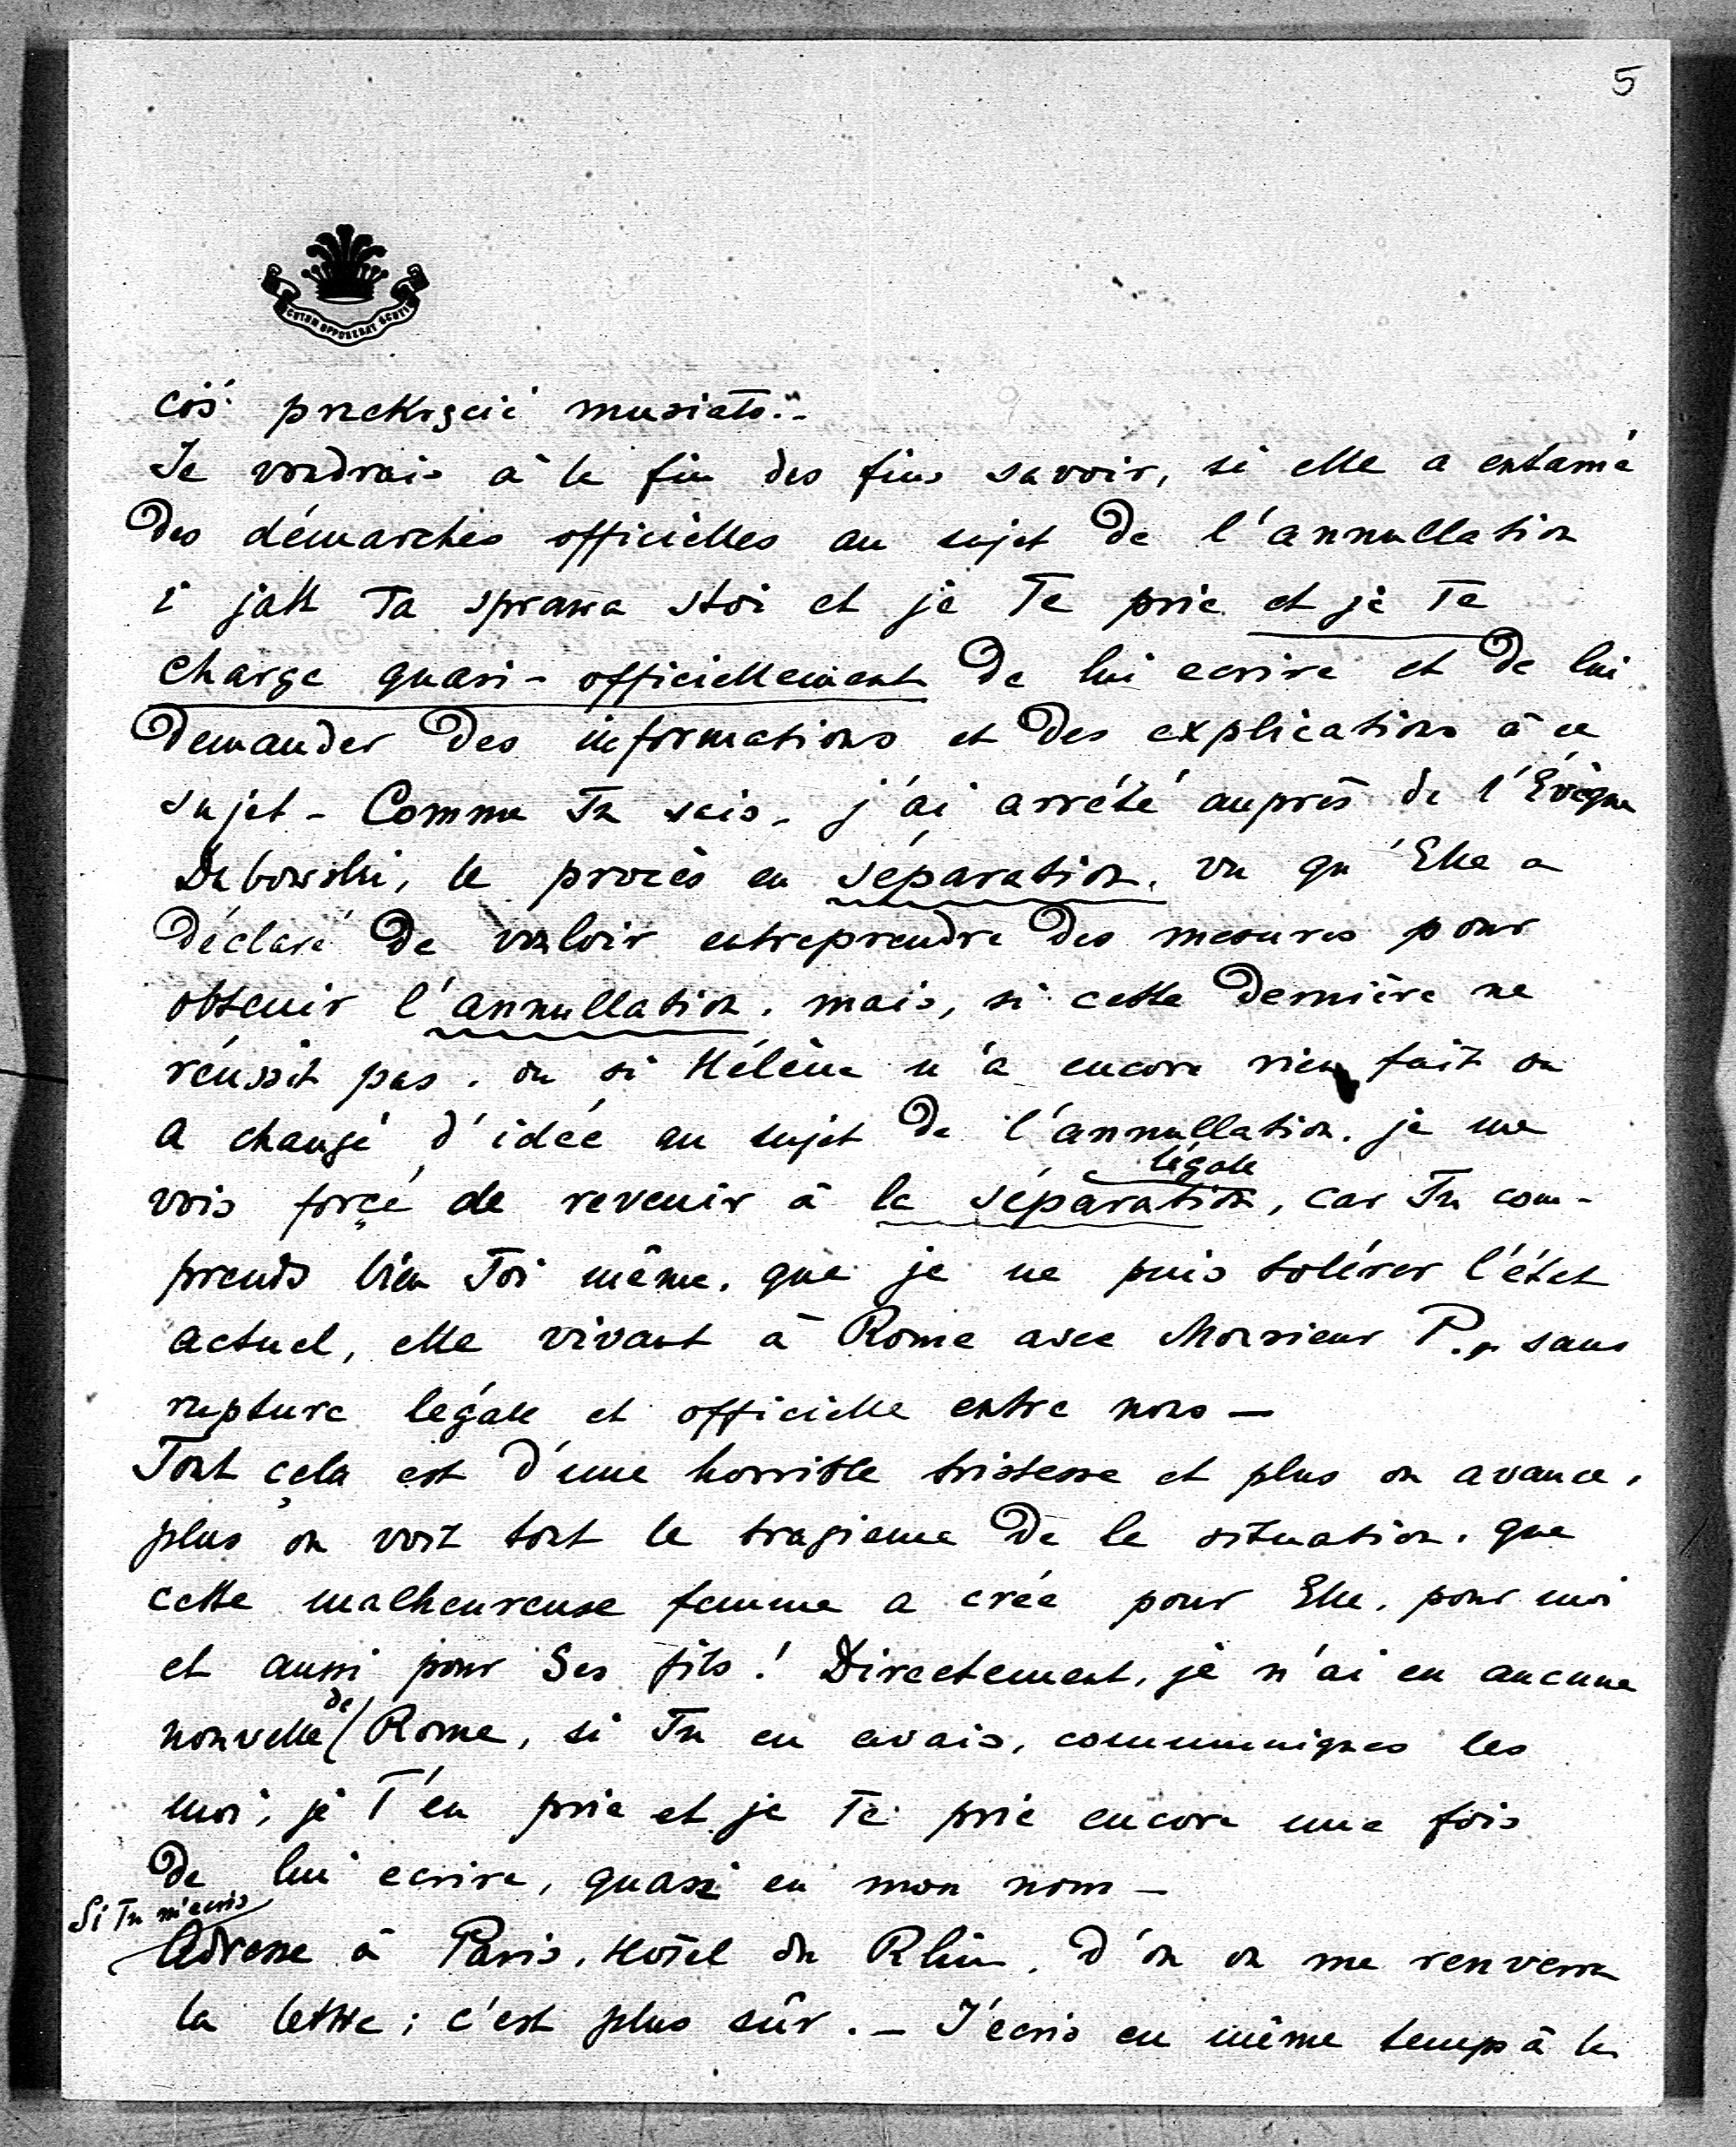 5
SCUTUM OPPONEBAT SCUTIS
coś przekręcić musiało.-
Je voudrais à la fin des fins savoir, si elle a entamé
des démarches officielles au sujet de l'annullation
i jak ta sprawa stoi et je Te prie et je Te
charge quasi-officiellement de lui ecrire et de lui
demander des informations et des explications à ce
sujet - Comme Tu sais, j'ai arrêté auprès de l'Évèque
Dubowski, le procès en séparation, vu qu'Elle a
déclaré de vouloir entreprendre des mesures pour
obtenir l'annullation. mais, si cette dernière ne
réussit pas, ou si Hélène n'a encore rien fait ou
a changé d'idée au sujet de l'annullation, je me
légale
vois forçé de revenir à la séparation, car Tu com-
prends bien Toi même, que je ne puis tolérer l'état
actuel, elle vivant à Rome avec Monsieur P., sans
rupture légale et officielle entre nous —
Tout çela est d'une horrible tristesse et plus on avance,
plus on voit tout le tragisme de la situation, que
cette malheureuse femme a crée pour Elle, pour moi
et aussi pour Ses fils! Directement, je n'ai eu aucune
de
nouvelle Rome, si Tu en avais, communiques les
moi, je T'en prie et je Te prie encore une fois
de lui ecrire, quasi en mon nom —
Si Tu m'ecris
Adresse à Paris, Hôtel du Rhin, d'ou on me renverra
la lettre; c'est plus sûr. - J'écris en même temps à la